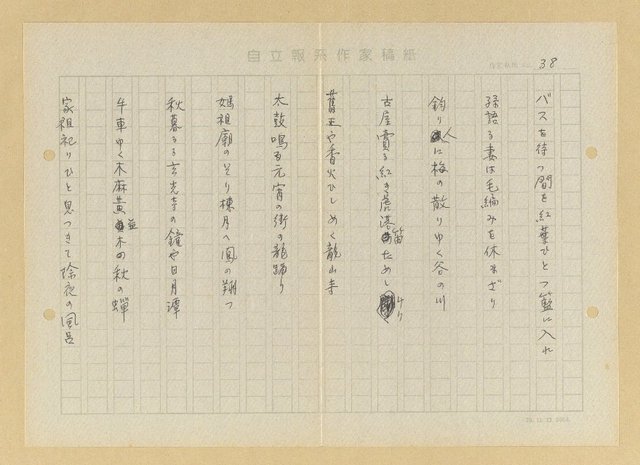 自立報系作家稿紙
38
バスを待つ間を紅葉ひとつ籃に入れ
孫語る妻は毛編みを休めざり
釣り人に梅の散りゆく谷の川
古屋賣る紅き鹿港笛ためしけり
舊正や香火ひしめく龍山寺
太鼓鳴る元宵の街の龍踊り
媽祖廟のそり棟月へ鳳の翔つ
秋暮るる玄光寺の鐘や日月潭
牛車ゆく木麻黄並木の秋の蟬
家祖祀りひと息つきて除夜の風呂